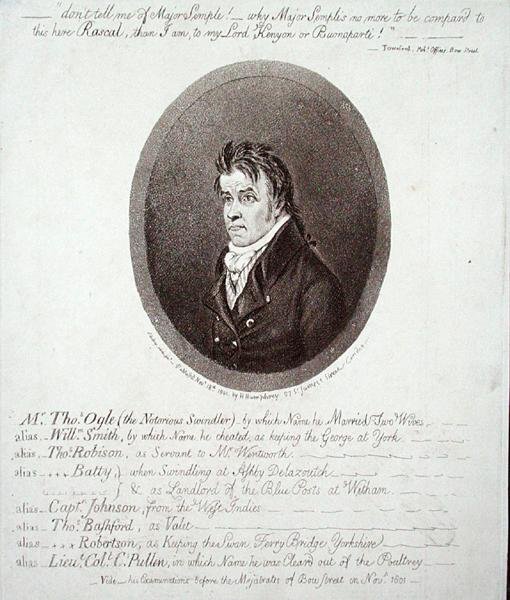 "don't tell me of Major Semple! — why Major Semple is no more to be compar'd to
this here Rascal, than I am, to my Lord Kenyon or Buonaparte!"
— Townsend, Pol: Officer, Bow Street.
Publish'd Novr. 18th. 1801, by H. Humphrey, 27 St. James's Street London
Mr. Thos. Ogle (the Notorious Swindler) by which Name he Married Two Wives
alias Willm. Smith, by which Name he cheated, as keeping the George at York
alias Thos. Robison, as Servant to Mr. Wentworth
alias Batty, } when Swindling at Ashby Delazouch
} & as Landlord of the Blue Posts at Witham
alias Capt. Johnson, from the West Indies
alias Thos. Bashford, as Valet
alias Robertson, as Keeping the Swan, Ferry Bridge, Yorkshire
alias Lieut. Coll. Cs. Pullen, in which Name he was Cleard out of the Poultrey
Vide his Examinations before the Majestrates of Bow Street in Novr. 1801